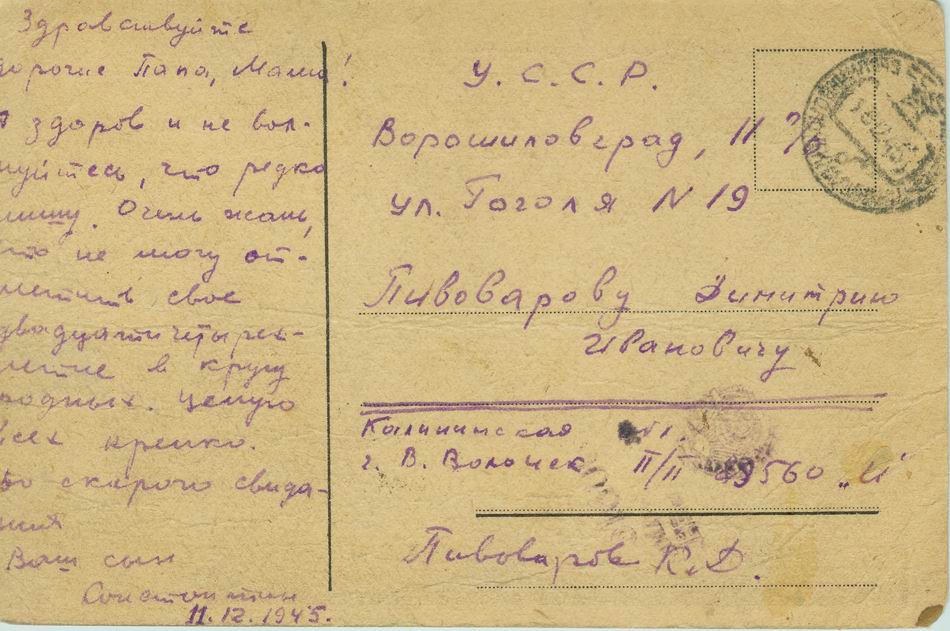 Здравствуйте
дорогие Папа, Мама!
Я здоров и не вол-
нуйтесь, что редко
пишу. Очень жаль,
что не могу от-
метить свое
двадцатичетырех-
летие в кругу
родных. Целую
всех крепко.
До скорого свида-
ния
Ваш сын
Константин
11.12.1945.
У.С.С.Р.
Ворошиловград, 11
ул. Гоголя N 19
Пивоварову Димитрию
Ивановичу
Калининская обл.
г. В. Волочек П/П 29560 „И"
Пивоваров К.Д.